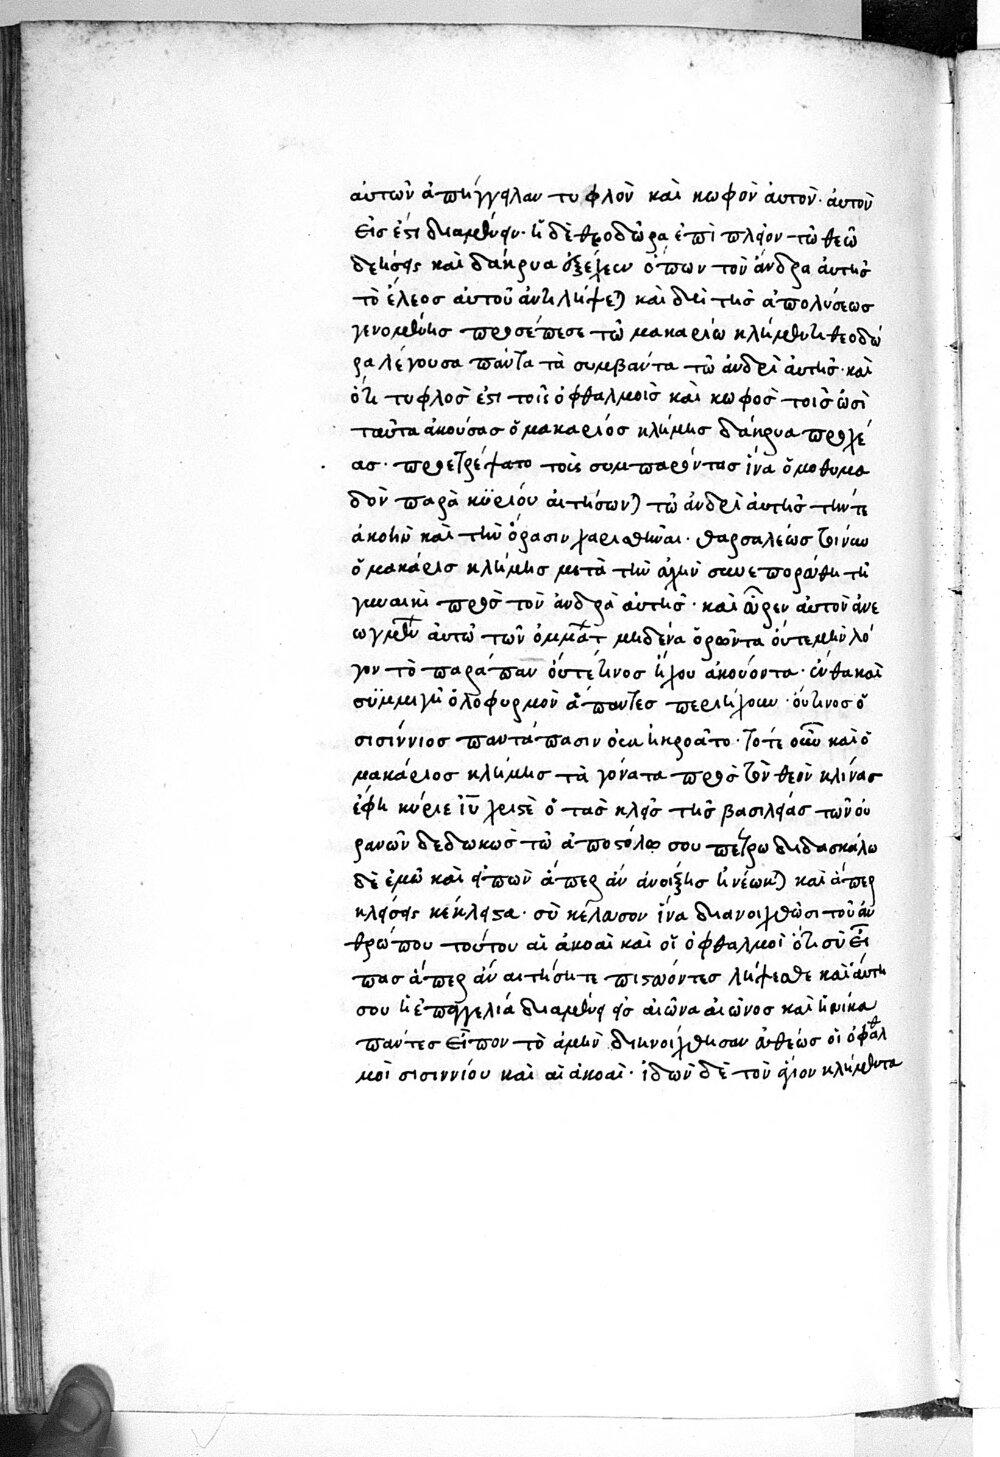 αὐτῶν ἀπήγγειλαν τυφλὸν καὶ κωφὸν αὐτὸν. αὐτὸν
εἰσέτι διαμένειν. ἡ δὲ θεοδώρα ἐπὶ πλεῖον τῶ θεῶ
δεήσεις καὶ δάκρυα ὅπως τὸν ἄνδρα αὐτῆς
τὸ ἔλεος αὐτοῦ ἀντιλήψεται καὶ δὴ τῆς ἀπολύσεως
γενομένης προσέπεσε τῶ μακαρίω κλήμεντι θεοδώ
ρα λέγουσα πάντα τὰ συμβάντα τῶ ἀνδρὶ αὐτῆς. καὶ
ὅτι τυφλὸς ἐστι τοῖς ὀφθαλμοῖς καὶ κωφὸς τοῖς ὠσὶ
ταῦτα ἀκούσας ὁ μακάριος κλήμης δάκρυα προχέ
ας. προετρέψατο τοῖς συμπαρόντας ἵνα ὁμοθυμα
δὸν παρὰ κυρίου αἰτήσωνται τῶ ἀνδρὶ αὐτῆς τήν τε
ἀκοὴν καὶ τὴν ὅρασιν χαρισθῆναι. θαρσαλέως
ὁ μακάριος κλήμης μετὰ τὴν εὐχὴν συνεπορεύθη τῆ
γυναικὶ πρὸς τὸν ἄνδρα αὐτῆς. καὶ εὗρεν αὐτὸν ἀνε
ωγμένων αὐτῶ τῶν ὀμμάτων μηδένα ὁρῶντα οὔτε μὴν λό
γον τὸ παράπαν οὔτε τινος ἤχου ἀκούοντα. ἔνθα καὶ
σύμμιγῆ ὀλοφυρμὸν ἅπαντες περιήχουν. οὕτινος ὁ
σισίννιος παντάπασιν οὐκ ἠκροᾶτο. τότε οὖν καὶ ὁ
μακάριος κλήμης τὰ γόνατα πρὸς τὸν θεὸν κλίνας
ἔφη κύριε ἰῦ χριστὲ ὁ τὰς κλεῖς τῆς βασιλείας τῶν οὐ
ρανῶν δεδωκὼς τῶ ἀποστόλω σου πέτρω διδασκάλω
δὲ ἐμῶ καὶ εἰπὼν ἅπερ ἂν ἀνοίξης ἠνέωκται καὶ ἅπερ
κλείσεις κέκλεισται. σὺ κέλευσον ἵνα διανοιχθῶσι τοῦ ἀν
θρώπου τούτου αἱ ἀκοαὶ καὶ οἱ ὀφθαλμοὶ ὅτι σὺ εἶ
πας ἅπερ ἂν αἰτήσητε πιστεύοντες λήψεσθε καὶ αὕτη
σου ἡ ἐπαγγελία διαμένει εἰς αἰῶνα αἰῶνος καὶ ἡνίκα
πάντες εἶπον τὸ ἀμὴν διηνοίχθησαν εὐθέως οἱ ὀφθαλ
μοὶ σισιννίου καὶ αἱ ἀκοαὶ. ἰδὼν δὲ τὸν ἅγιον κλήμεντα